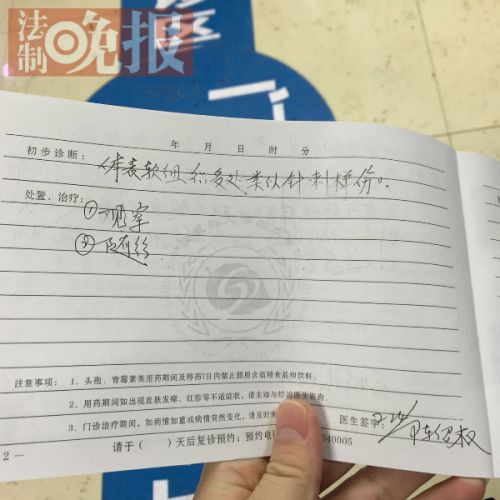 法制晚报
年 月 日 时 分
初步诊断：体表软组织多处类似针刺样伤。
处置、治疗：①观察
②随诊
注意事项：1、头孢、青霉素类用药期间及停药7日内禁止服用含酒精食品和饮料。
2、用药期间如出现皮肤发痒、红疹等不适症状，请主动与经治医生咨询
3、门诊治疗期间，如病情加重或病情突然变化，请及时来
医生签字：
请于（ ）天后复诊预约；预约电 340005
2 —